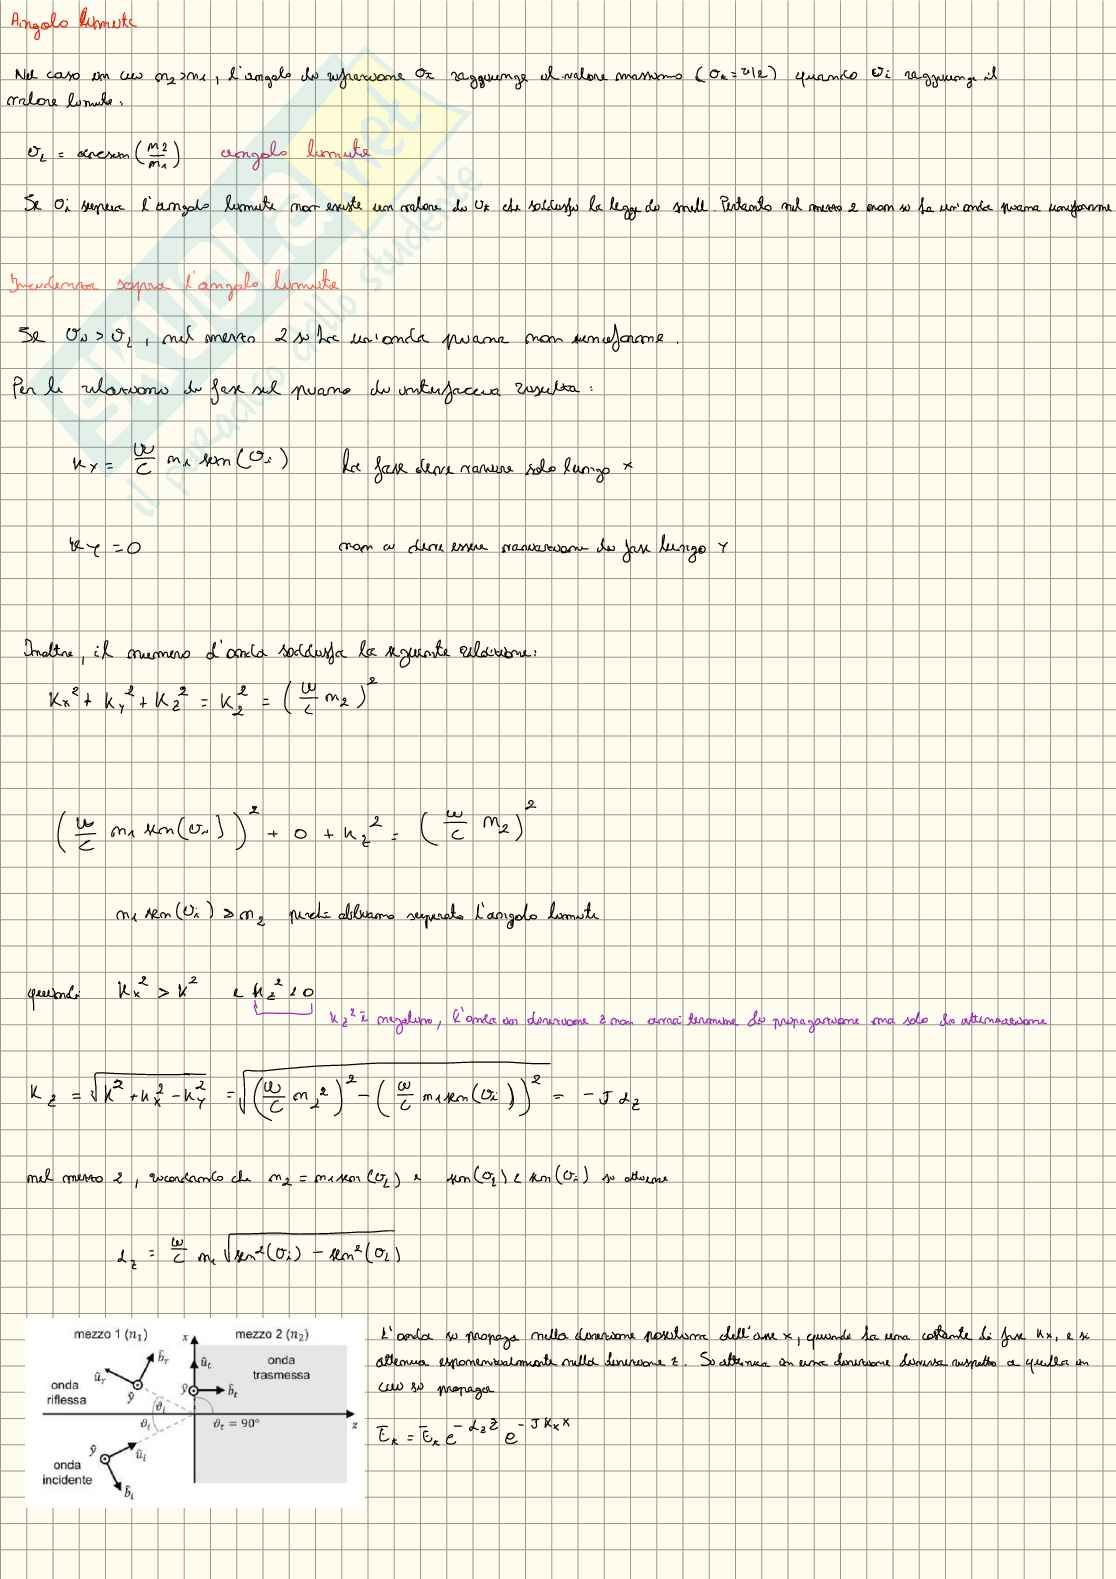 Angolo limite
Nel caso in cui n2>n1, l'angolo di rifrazione θt raggiunge il valore massimo (θt = π/2) quando θi raggiunge il
valore limite.
θL = arcsen(n2/n1) angolo limite
Se θi supera l'angolo limite non esiste un valore di θt che soddisfa la legge di snell. Pertanto nel mezzo 2 non si ha un'onda piana uniforme
Incidenza sopra l'angolo limite
Se θi > θL, nel mezzo 2 si ha un'onda piana non uniforme.
Per le relazioni di fase sul piano di interfaccia risulta:
Kx = ω/c n1 sen(θi) La fase deve variare solo lungo x
Ky = 0 non ci deve essere variazione di fase lungo Y
Inoltre, il numero d'onda soddisfa la seguente relazione:
Kx² + Ky² + Kz² = K2² = (ω/c n2)²
(ω/c n1 sen(θi))² + 0 + Kz² = (ω/c n2)²
n1 sen(θi) > n2 perché abbiamo superato l'angolo limite
quindi Kx² > K² e Kz² < 0
Kz² è negativo, l'onda in direzione z non avrà termine di propagazione ma solo di attenuazione
Kz = √(K² + Kx² - Ky²) = √((ω/c n2²)² - (ω/c n1 sen(θi))²) = -J αz
nel mezzo 2, ricordando che n2 = n1 sen(θL) e sen(θL) < sen(θi) si ottiene
αz = ω/c n1 √(sen²(θi) - sen²(θL))
mezzo 1 (n₁) x mezzo 2 (n₂)
b̂r ût onda
ûr trasmessa
onda ŷ ŷ b̂t
riflessa ϑi
ϑi ϑt = 90° z
ŷ ûi
onda
incidente b̂i
L'onda si propaga nella direzione positiva dell'asse x, quindi ha una costante di fase Kx, e si
attenua esponenzialmente nella direzione z. Si attenua in una direzione diversa rispetto a quella in
cui si propaga
Ēt = Ēt e^-αz z e^-JKx x